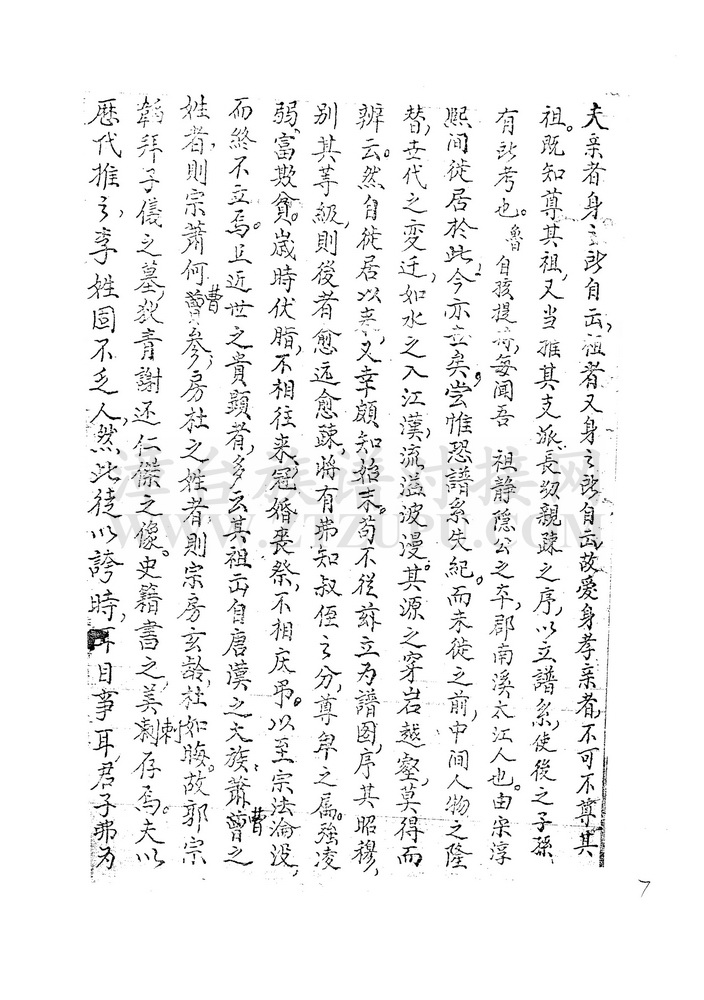 夫亲者身之所自出,祖者又身之所自出,故爱身孝亲者,不可不尊其
祖。既知尊其祖,又当推其支派,長幼親疎之序,以立譜系,使後之子孫
有所考也。魯自孩提時,每聞吾 祖静隐公之卒,郡南溪太江人也。由宋淳
熙间徙居於此,今亦世矣。尝惟恐譜系失紀。而未徙之前,中间人物之隆
替,世代之変迁,如水之入江漢,流溢波漫。其源之穿岩越壑,莫得而
辨云。然自徙居以来,又幸頗知始末。苟不從玆立为譜图,序其昭穆,
别其等级,則後者愈远愈疎,将有弗知叔侄之分,尊卑之属。强凌
弱,富欺貧。崴時伏腊,不相往来,冠婚丧祭,不相庆弔。以至宗法淪没,
而終不立焉。且近世之貴顯者,多云其祖出自唐漢之大族,蕭曹之
姓者,則宗萧何曹参,房杜之姓者則宗房玄龄,杜如晦。故郭宗
韜拜子儀之墓,狄青謝还仁傑之像。史籍書之,美刺存焉。夫以
歴代推之,李姓固不乏人,然此徒以誇時,耳目事耳,君子弗为
7
江台族谱对接网
WWW.ZTZUPU.COM